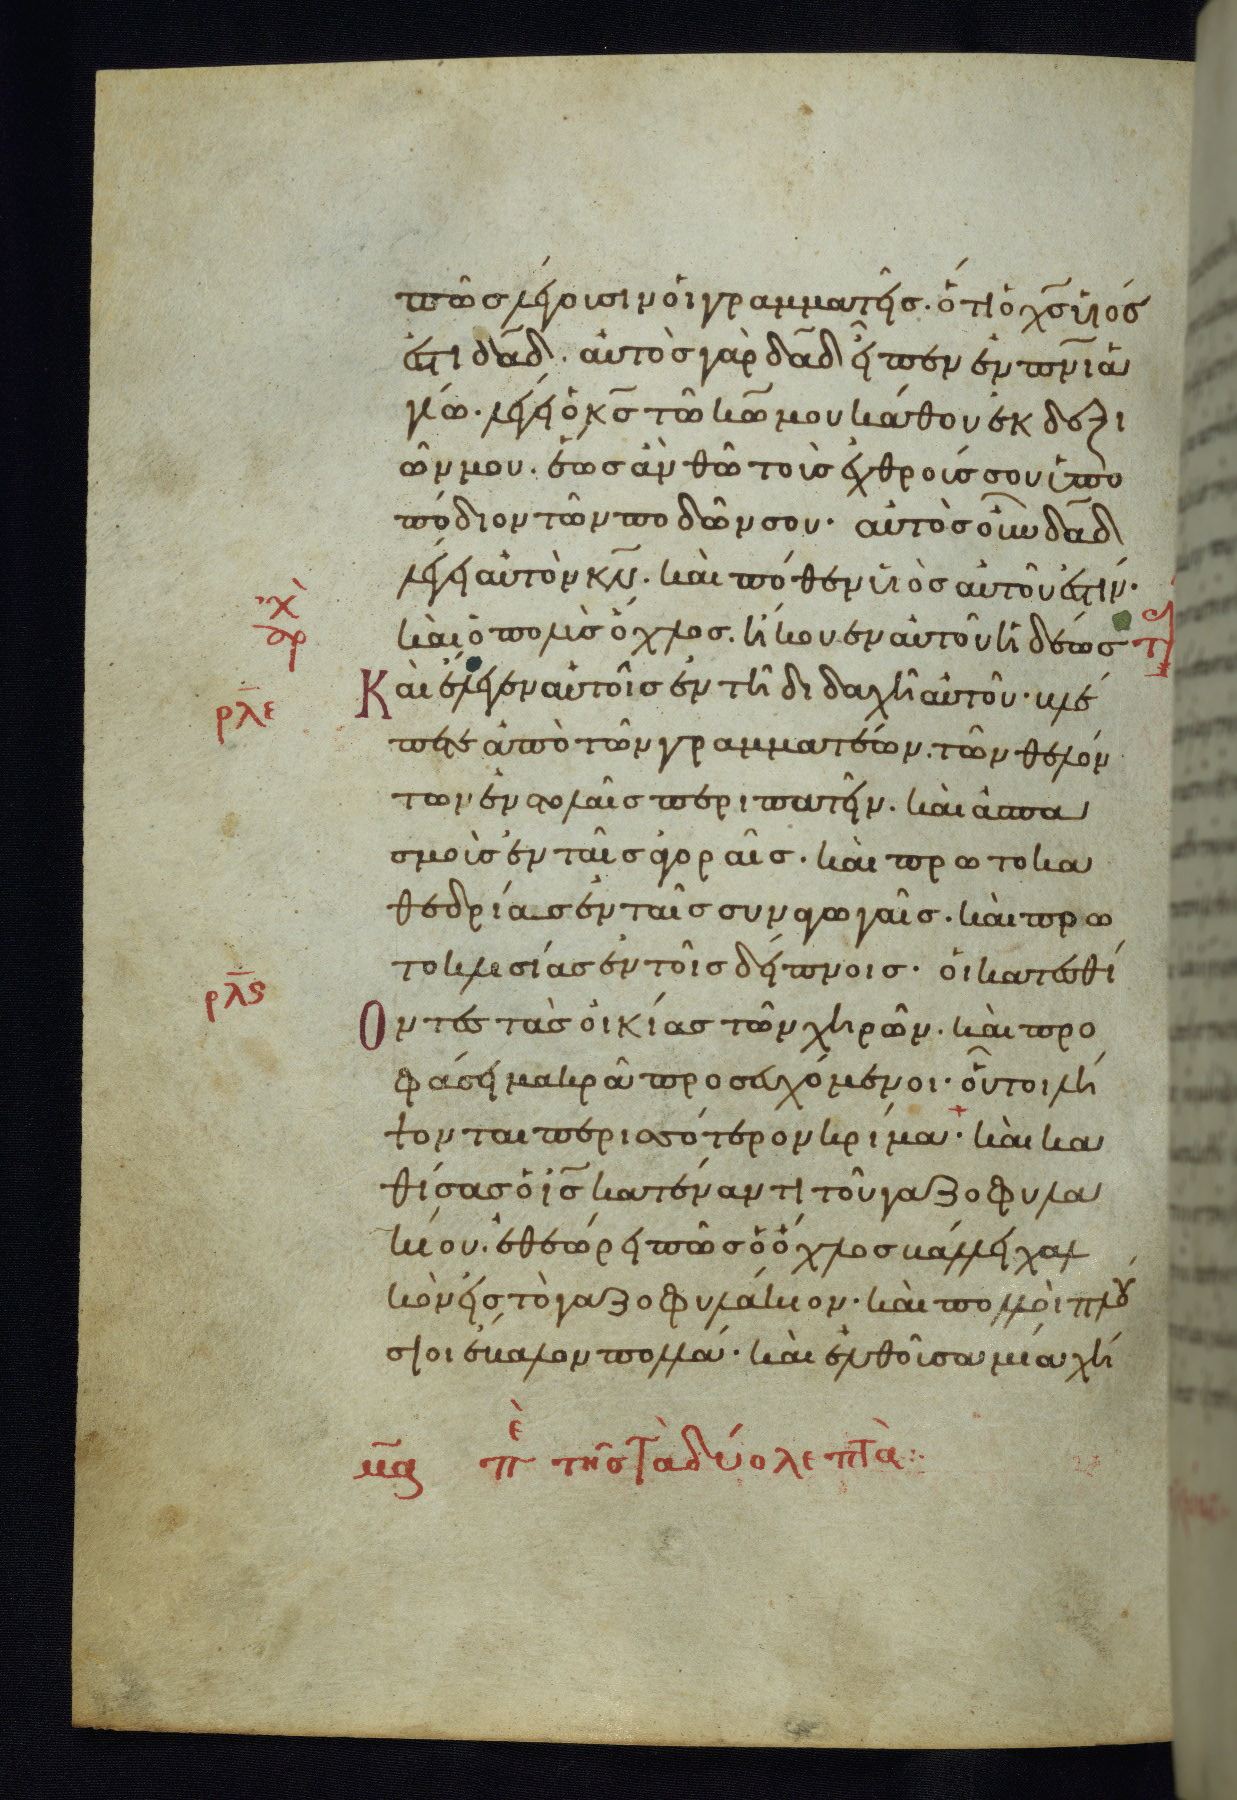 πῶς λέγουσιν οἱ γραμματεῖς. ὅτι ὁ χ̅ς̅ υἱός
ἐστι δα̅δ̅. αὐτὸς γὰρ δα̅δ̅ εἶπεν ἐν πν̅ι̅ ἁ
γίω. λέγει ὁ κ̅ς̅ τῶ κ̅ω̅ μου κάθου ἐκ δεξι
ῶν μου. ἕως ἂν θῶ τοὺς ἐχθρούς σου ὑπο
πόδιον τῶν ποδῶν σου. αὐτὸς οὖν δα̅δ̅
λέγει αὐτὸν κ̅ν̅. καὶ πόθεν υἱὸς αὐτοῦ ἐστιν.
ἀρχ
καὶ ὁ πολὺς ὄχλος. ἤκουεν αὐτοῦ ἡδέως τε
ρ̅λ̅ε̅
Καὶ ἔλεγεν αὐτοῖς ἐν τῆ διδαχῆ αὐτοῦ. βλέ
πετε ἀπὸ τῶν γραμματέων. τῶν θελόν
των ἐν στολαῖς περιπατεῖν. καὶ ἀσπα
σμοὺς ἐν ταῖς ἀγοραῖς. καὶ πρωτοκα
θεδρίας ἐν ταῖς συναγωγαῖς. καὶ πρω
τοκλισίας ἐν τοῖς δείπνοις. οἱ κατεσθί
ρ̅λ̅ς̅
Οντες τὰς οἰκίας τῶν χηρῶν. καὶ προ
φάσει μακρᾶ προσευχόμενοι. οὗτοι λή
ψονται περισσότερον κρίμα. καὶ κα
θίσας ὁ ι̅ς̅ κατέναντι τοῦ γαζοφυλα
κίου. ἐθεώρει πῶς ὁ ὄχλος βάλλει χαλ
κὸν εἰς τὸ γαζοφυλάκιον. καὶ πολλοὶ πλού
σιοι ἔβαλον πολλά. καὶ ἐλθοῦσα μία χή
μ̅α̅ πε τῆς τὰ δύο λεπτά